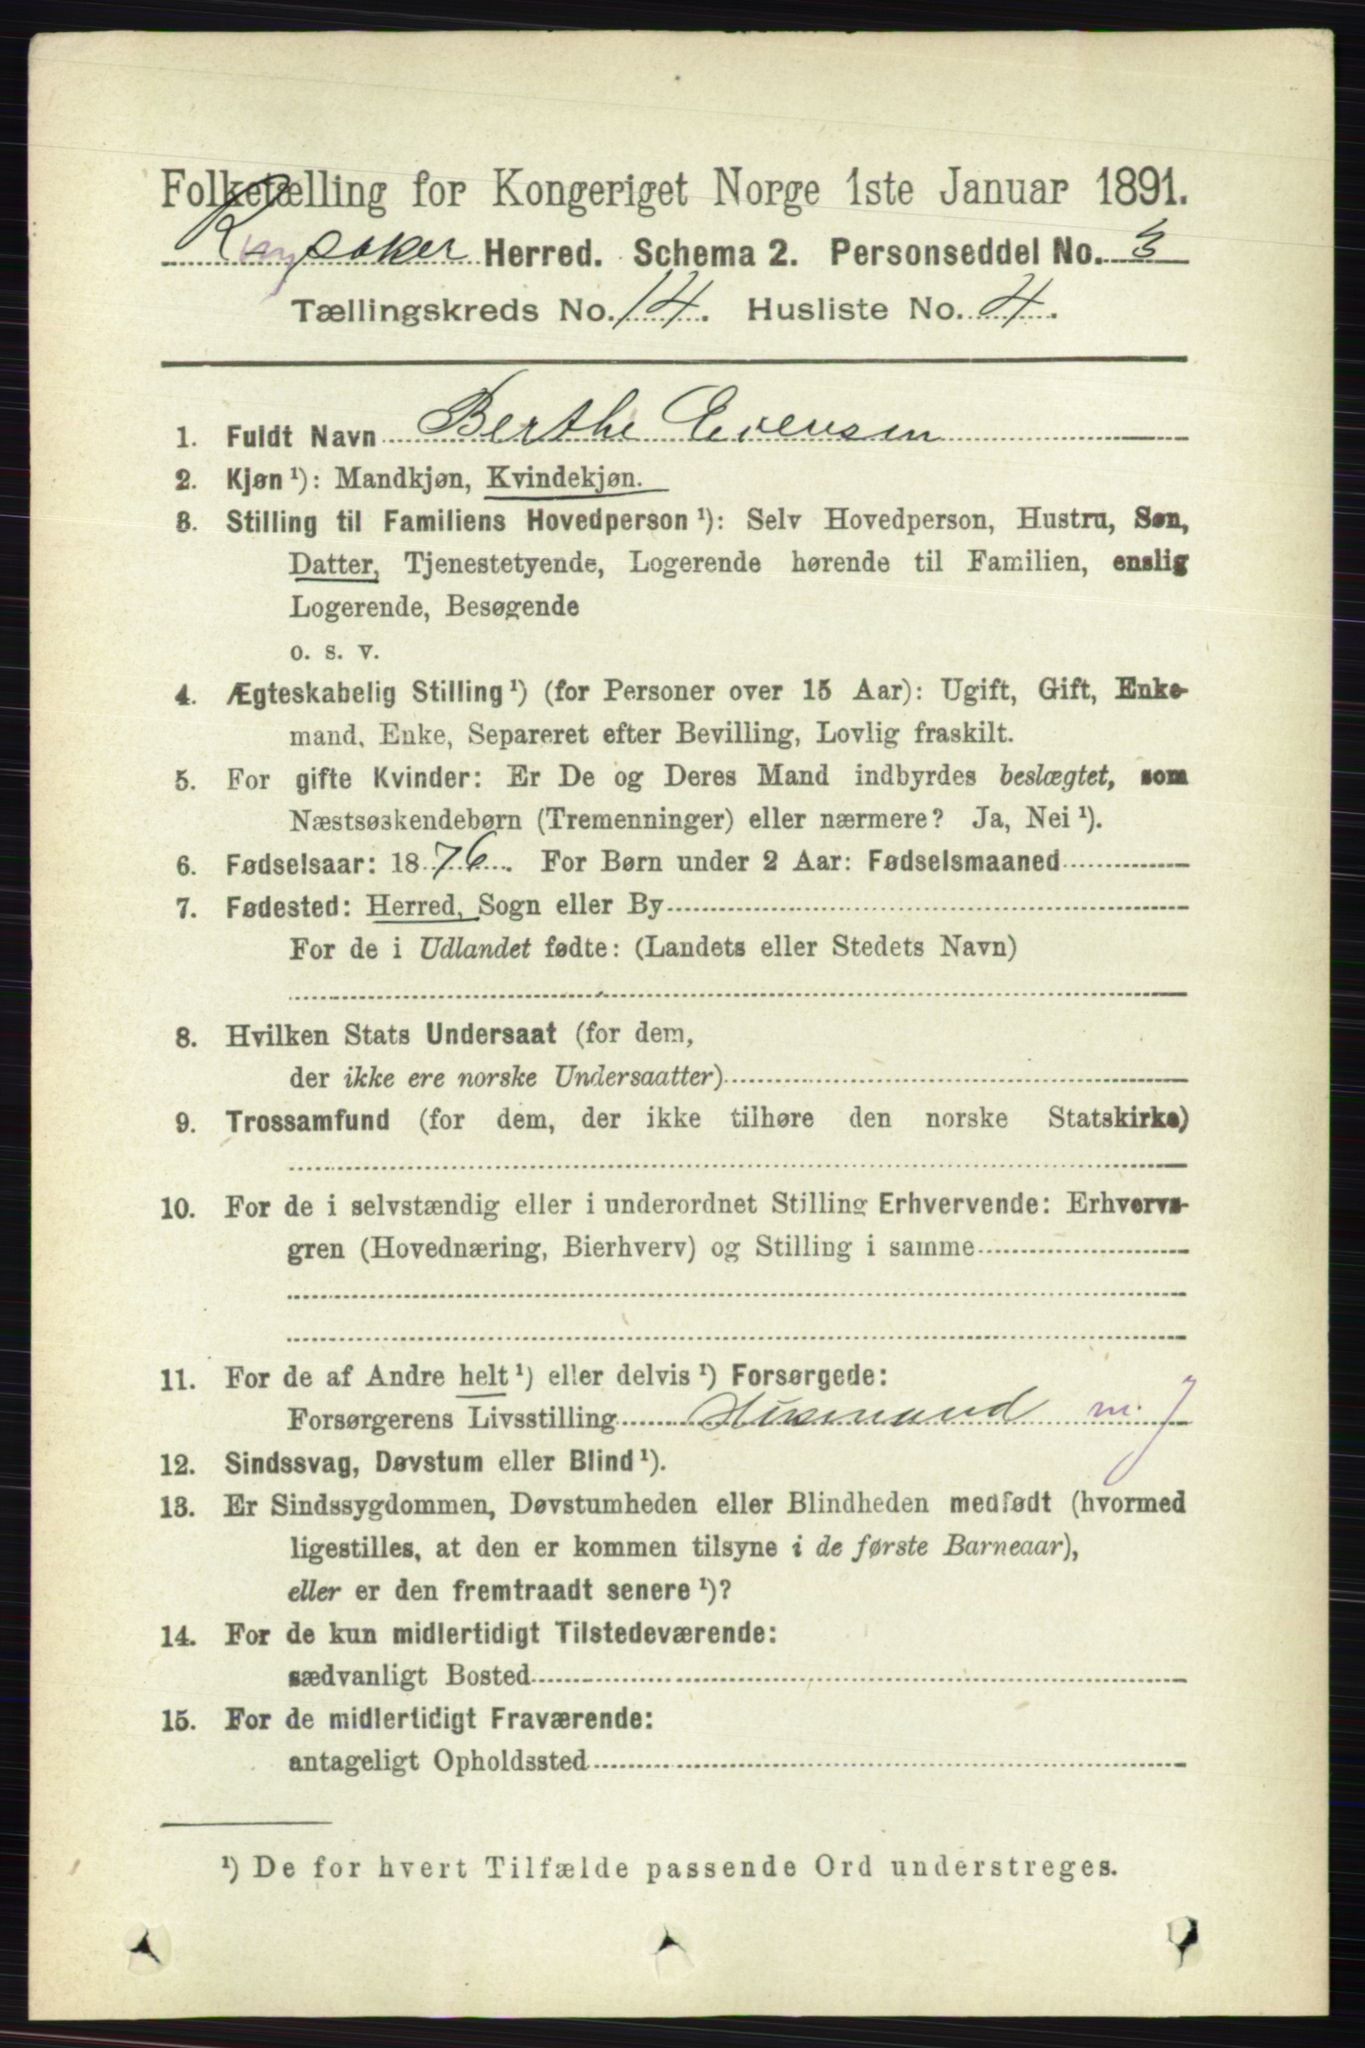 Folketælling for Kongeriget Norge 1ste Januar 1891.
Ringsaker Herred. Schema 2. Personseddel No. 3
Tællingskreds No. 14. Husliste No. 4.
1. Fuldt Navn Berthe Evensen
2. Kjøn ¹): Mandkjøn, Kvindekjøn.
3. Stilling til Familiens Hovedperson ¹): Selv Hovedperson, Hustru, Søn,
Datter, Tjenestetyende, Logerende hørende til Familien, enslig
Logerende, Besøgende
o. s. v.
4. Ægteskabelig Stilling ¹) (for Personer over 15 Aar): Ugift, Gift, Enke-
mand, Enke, Separeret efter Bevilling, Lovlig fraskilt.
5. For gifte Kvinder: Er De og Deres Mand indbyrdes beslægtet, som
Næstsøskendebørn (Tremenninger) eller nærmere? Ja, Nei ¹).
6. Fødselsaar: 1876. For Børn under 2 Aar: Fødselsmaaned
7. Fødested: Herred, Sogn eller By
For de i Udlandet fødte: (Landets eller Stedets Navn)
8. Hvilken Stats Undersaat (for dem,
der ikke ere norske Undersaatter)
9. Trossamfund (for dem, der ikke tilhøre den norske Statskirke)
10. For de i selvstændig eller i underordnet Stilling Erhvervende: Erhvervs-
gren (Hovednæring, Bierhverv) og Stilling i samme
11. For de af Andre helt ¹) eller delvis ¹) Forsørgede:
Forsørgerens Livsstilling Husmand m. J
12. Sindssvag, Døvstum eller Blind ¹).
13. Er Sindssygdommen, Døvstumheden eller Blindheden medfødt (hvormed
ligestilles, at den er kommen tilsyne i de første Barneaar),
eller er den fremtraadt senere ¹)?
14. For de kun midlertidigt Tilstedeværende:
sædvanligt Bosted
15. For de midlertidigt Fraværende:
antageligt Opholdssted
¹) De for hvert Tilfælde passende Ord understreges.